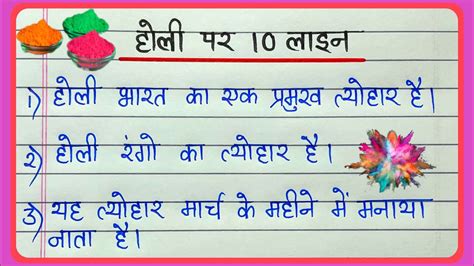 होली पर 10 लाइन
1) होली भारत का एक प्रमुख त्योहार है।
2) होली रंगो का त्योहार है।
3) यह त्योहार मार्च के महीने में मनाया
जाता है।